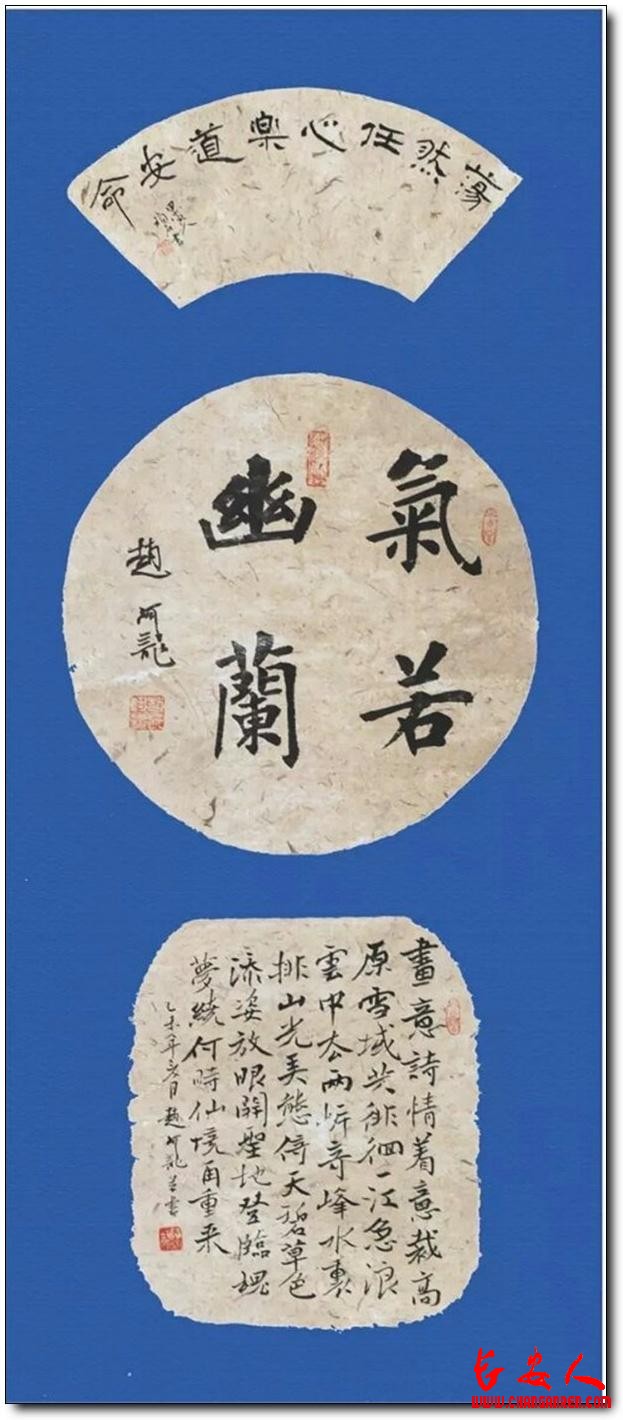 蕩然任心楽道安命
氣若
幽蘭
趙阿龍
畫意詩情着意裁高
原雪域共徘徊一江急浪
雲中去兩岸奇峰水裏
排山光美態倚天碧草色
添姿放眼開聖地登臨魂
夢繞何時仙境再重來
乙未年月趙阿龍並書
长安人